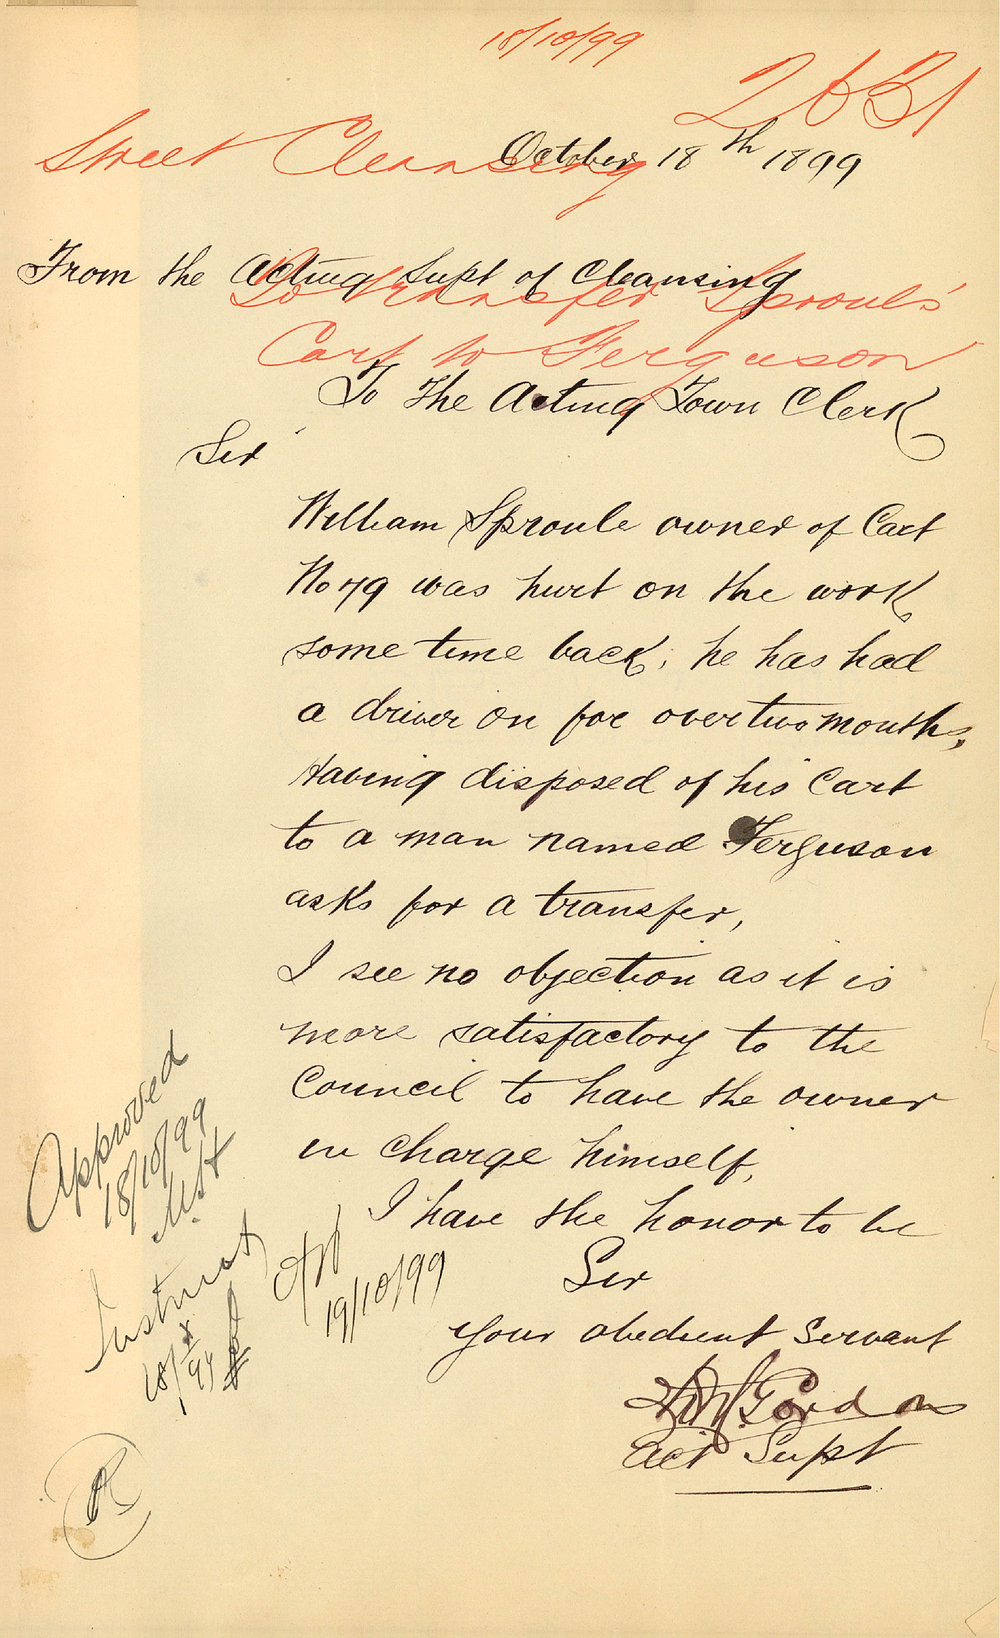 18/10/99
2631
Street Cleansing
October 18th 1899
From the Acting Supt of Cleansing
To transfer Sprouls'
Cart to Ferguson
To The Acting Town Clerk
Sir
William Sproule owner of Cart
No 79 was hurt on the work
some time back, he has had
a driver on for over two months,
Having disposed of his Cart
to a man named Ferguson
asks for a transfer,
I see no objection as it is
more satisfactory to the
Council to have the owner
in charge himself,
I have the honor to be
Sir
your obedient Servant
Gordon
Act Supt
Approved
18/10/99
Instruct
18/X
19/10/99
R